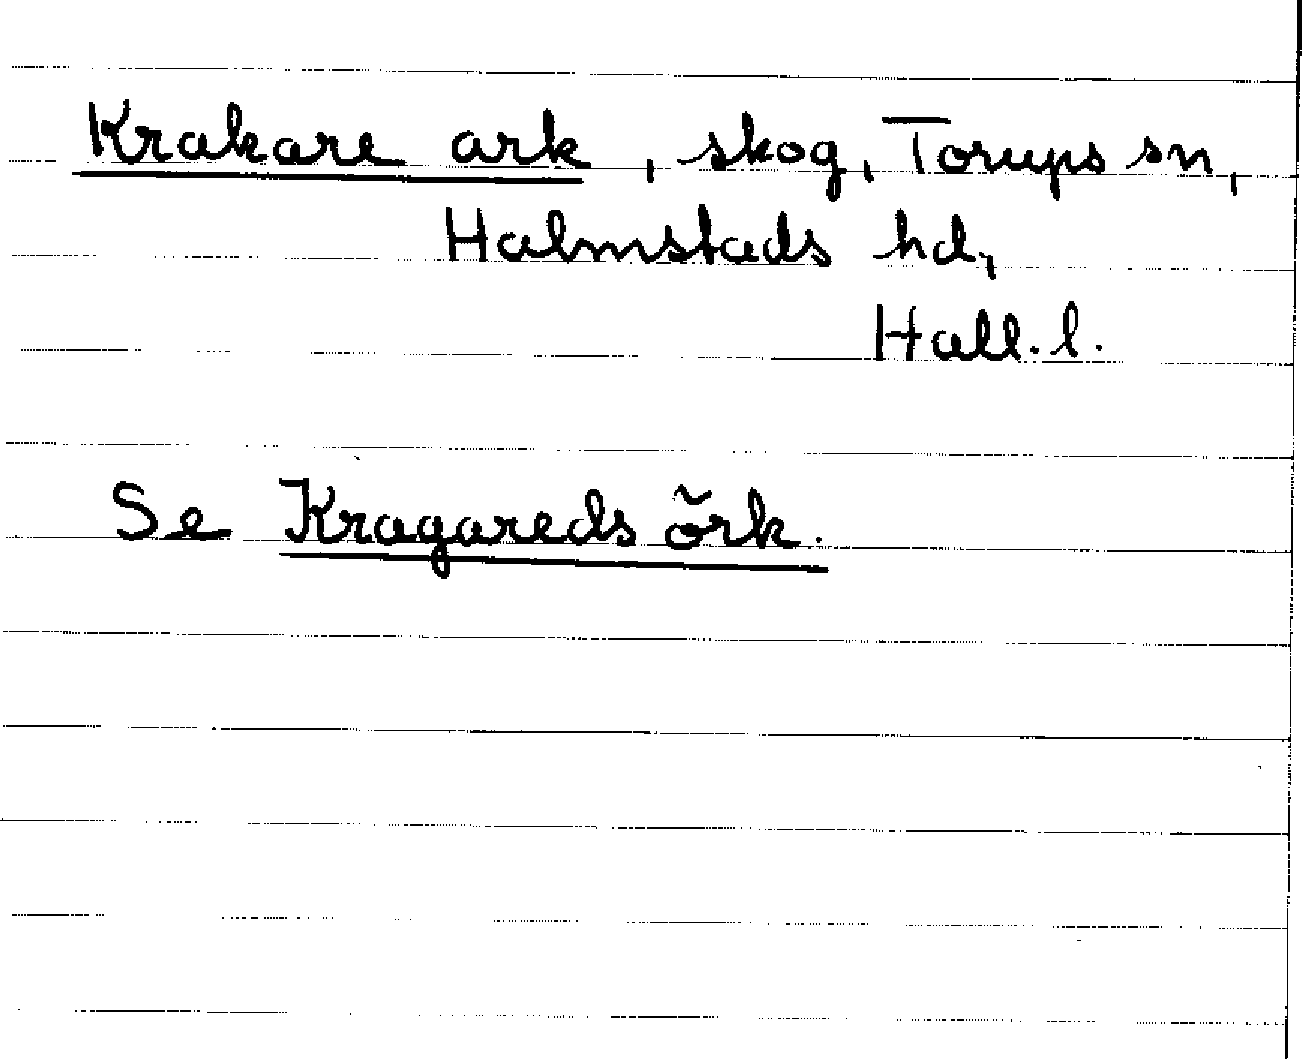 Krakare ark, skog, Torups sn,
Halmstads hd,
Hall. l.
Se Kragareds örk.